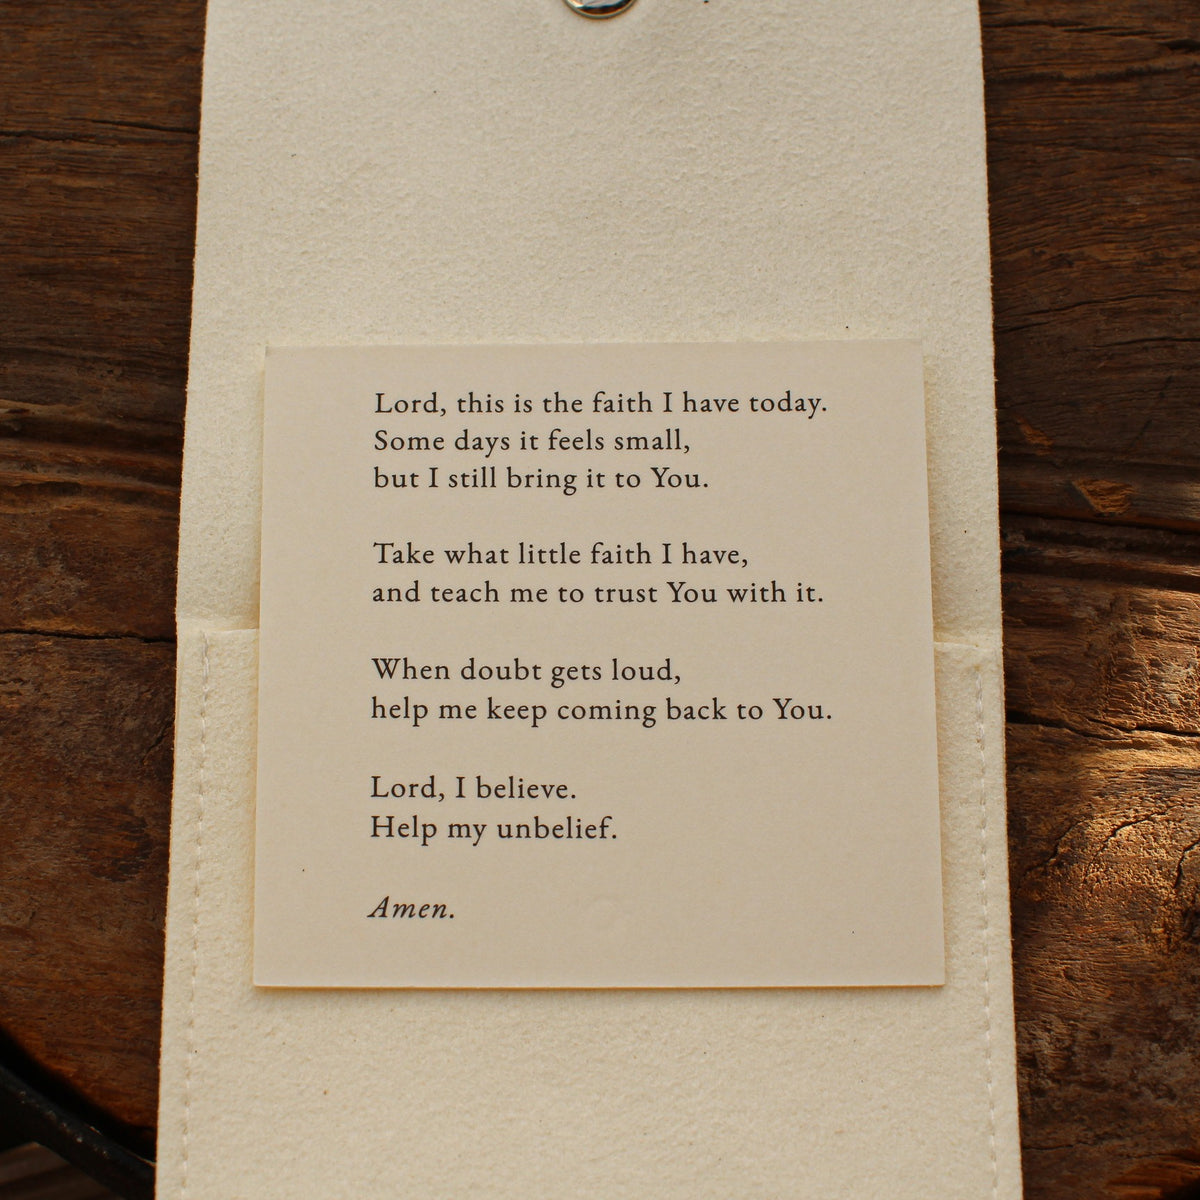 Lord, this is the faith I have today.
Some days it feels small,
but I still bring it to You.
Take what little faith I have,
and teach me to trust You with it.
When doubt gets loud,
help me keep coming back to You.
Lord, I believe.
Help my unbelief.
Amen.